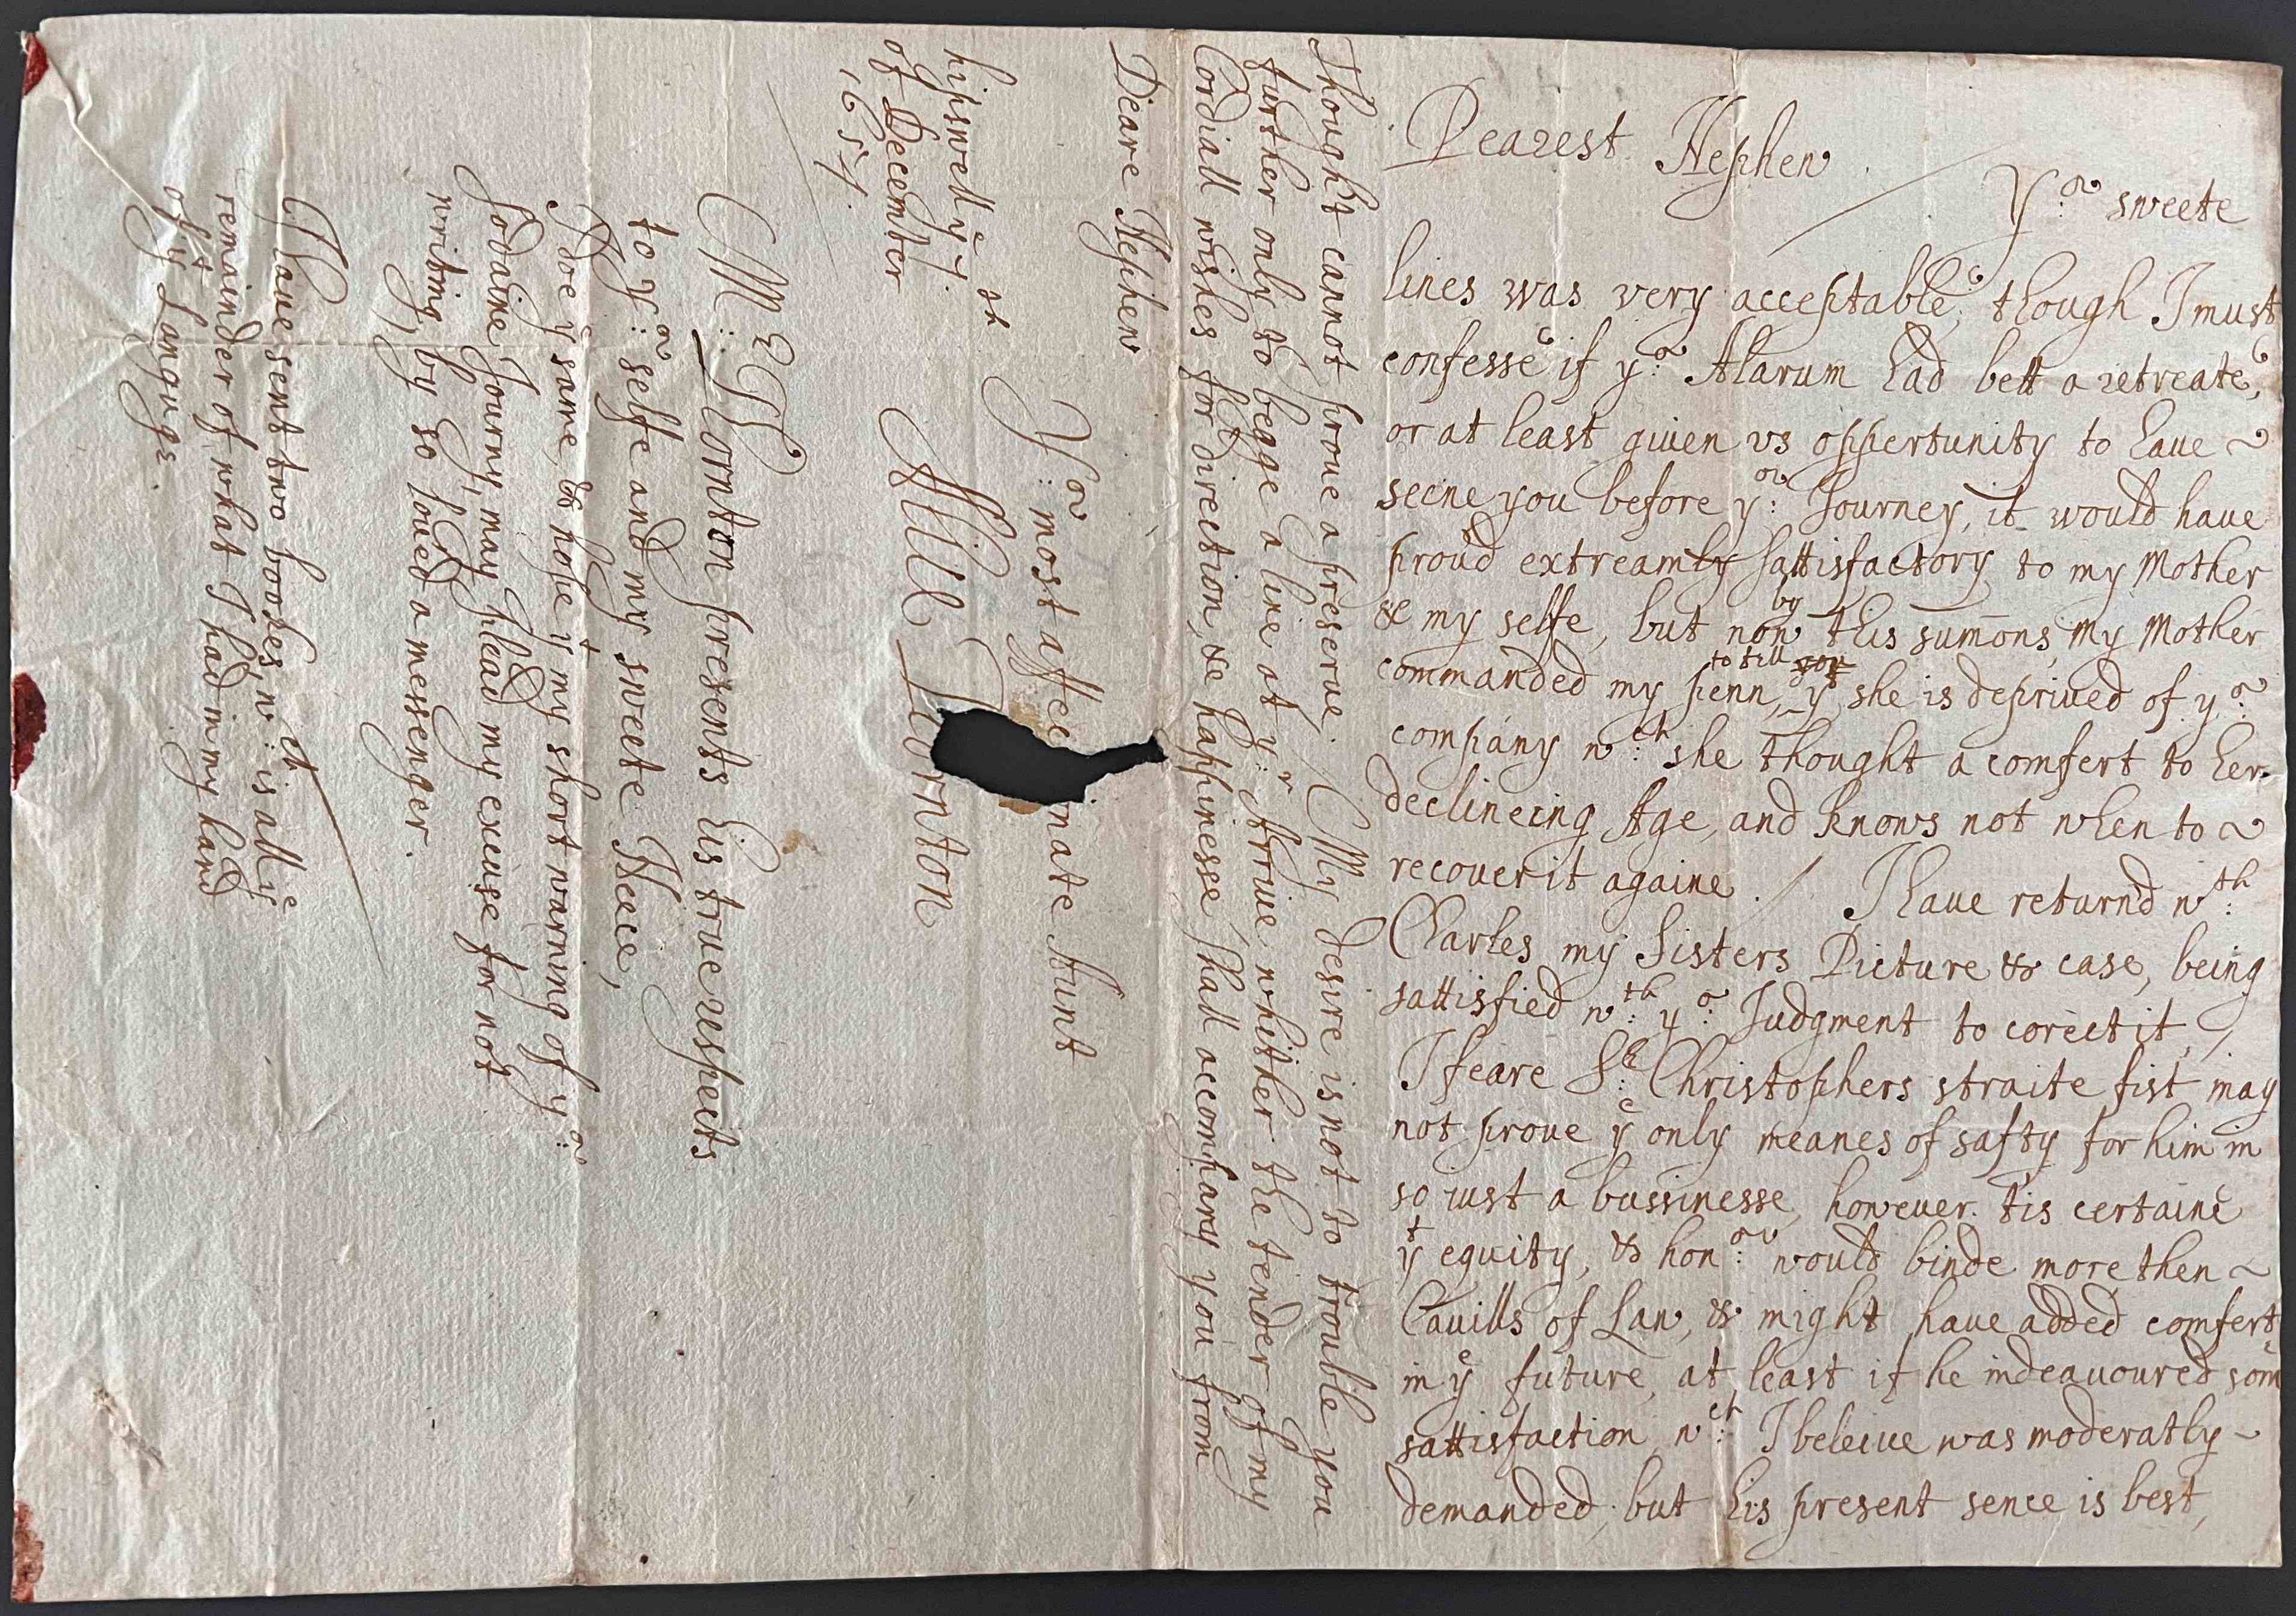 Dearest Nephew
Yor sweete
lines was very acceptable, though I must
confesse if yor Alarum had bett a retreate,
or at least giuen vs oppertunity to haue
seene you before yor Journey, it would haue
proud extreamly sattisfactory to my Mother
& my selfe, but now by this sumons, my Mother
commanded my penn, to tell you yt she is depriued of yor
company wch she thought a comfert to her
declineing Age, and knows not when to
recouer it againe. / I haue returnd wth
Charles my Sisters Picture & case, being
sattisfied wth yor Judgment to corect it, /
I feare Sr Christophers straite fist may
not proue ye only meanes of safty for him in
so iust a bussinesse, howeuer tis certaine
yt equity, & honor would binde more then
Cauills of Law, & might haue added comfert
in ye future, at least if he indeauoured som
sattisfaction wch I beleiue was moderatly
demanded, but his present sence is best,
Thought cannot proue a preserue. / My desire is not to trouble you
further only to begge a line at yr Arriue, whither the tender of my
Cordiall wishes for direction, & happinesse shall accompany you from
Deare Nephew
Yor most affec nate Aunt
hipswell ye 7th
of December
1654
Alice Thornton
Mr Thornton presents his true respects
to yor selfe and my sweete Neece,
I doe ye same, & hope yt my short warning of yor
sodaine Journy, may plead my excuse for not
writing, by so loued a messenger.
I haue sent two bookes, wch is all ye
remainder of what I had in my hand
of yt Languge.